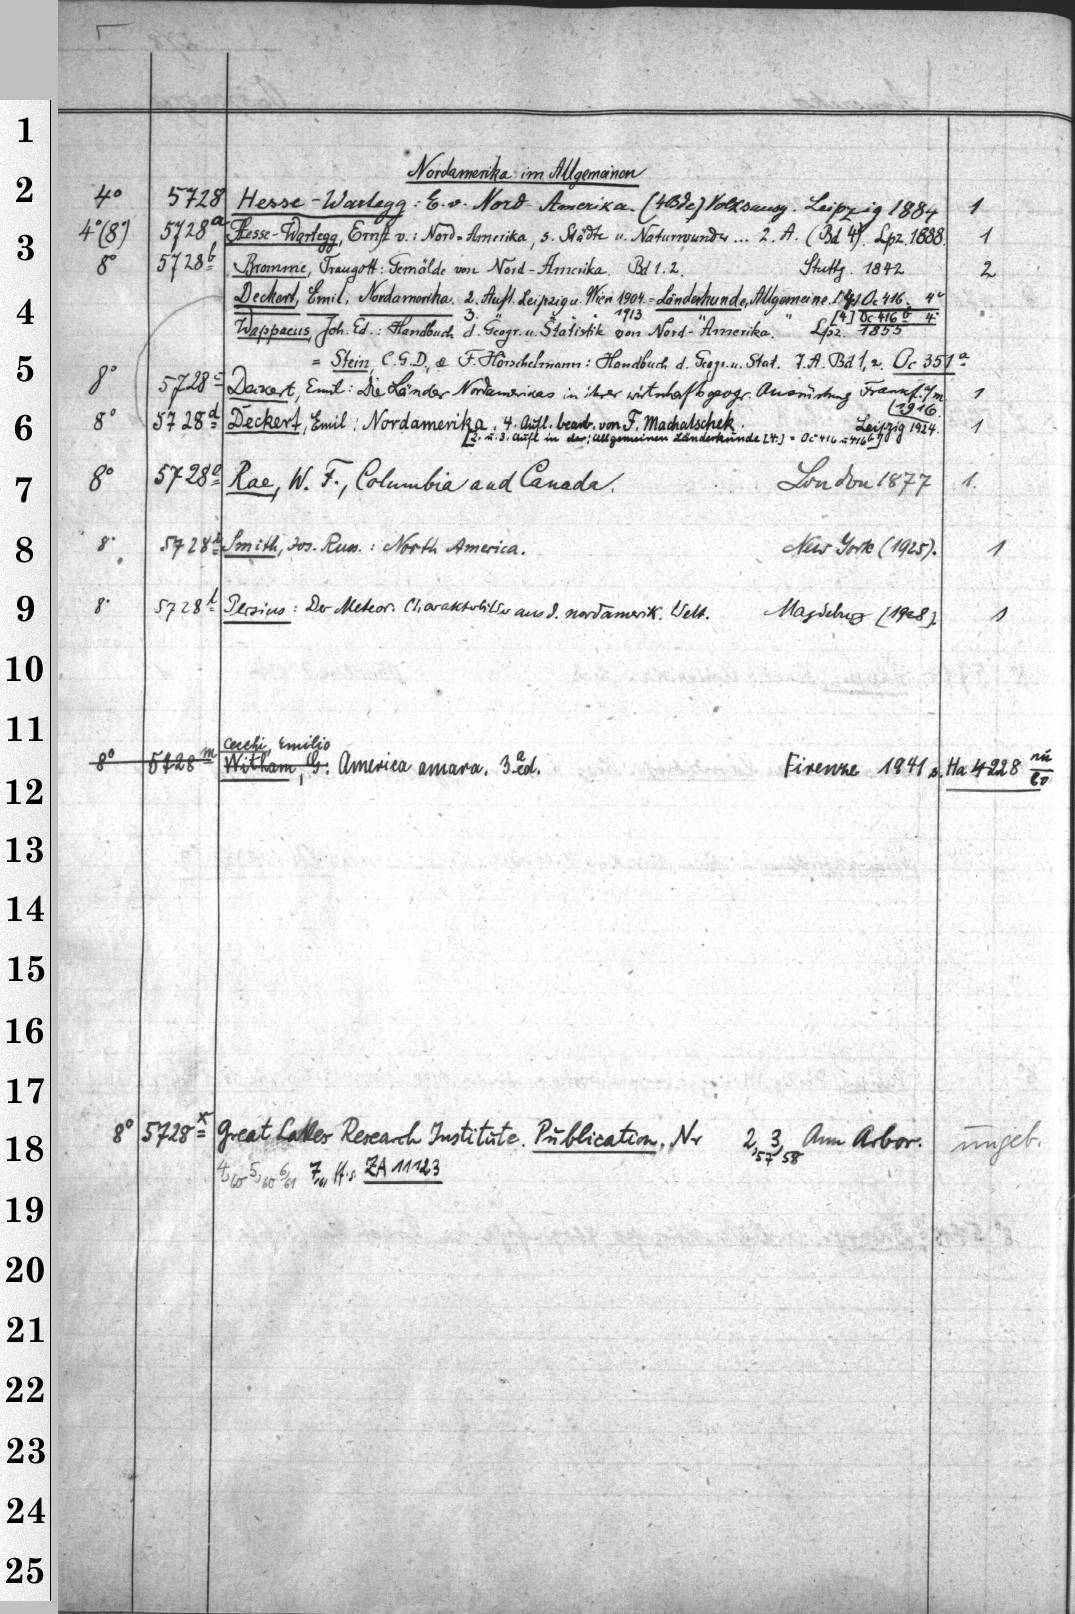 1
2
3
4
5
6
7
8
9
10
11
12
13
14
15
16
17
18
19
20
21
22
23
24
25
Nordamerika im Allgemeinen
4° 5728 Hesse-Wartegg: E. v. Nord-Amerika. (4 Bde) Volksausg. Leipzig 1884 1
4°(8°) 5728a Hesse-Wartegg, Ernst v.: Nord-Amerika, s. Städte u. Naturwunder... 2. A. (Bd 4). Lpz. 1888. 1
8° 5728b Bromme, Traugott: Gemälde von Nord-Amerika. Bd 1. 2. Stuttg. 1842 2
Deckert, Emil, Nordamerika. 2. Aufl. Leipzig u. Wien 1904 = Länderkunde, Allgemeine. Oc 416. 4°
3. " " " 1913 " [4] Oc 416b 4°
Wappaeus, Joh. Ed.: Handbuch d. Geogr. u. Statistik von Nord-Amerika. Lpz. 1855
= Stein, C. G. D., & F. Hörschelmann: Handbuch d. Geogr. u. Stat. 7. A. Bd 1,2. Oc 351a
8° 5728c Deckert, Emil: Die Länder Nordamerikas in ihrer wirtschaftsgeogr. Ausrüstung Frankf. /m 1
(1916.
8° 5728d Deckert, Emil: Nordamerika. 4. Aufl. bearb. von F. Machatschek. Leipzig 1924. 1
[2. u. 3. Aufl. in der: Allgemeinen Länderkunde [4.] = Oc 416 - 416b]
8° 5728e Rae, W. F., Columbia and Canada. London 1877 1.
8° 5728h Smith, Jos. Russ.: North America. New York (1925). 1
8° 5728l Persius: Der Meteor. Charakterbilder aus d. nordamerik. Welt. Magdeburg [1928]. 1
Cecchi, Emilio
8° 5728m Witham, G: America amara. 3a ed. Firenze 1941 s. Ha 4228 nü
8°
8° 5728x Great Lakes Research Institute. Publication. Nr 2,57 3,58 Ann Arbor. ungeb.
4,60 5,60 6/61 7,61 ff. s. ZA 11123